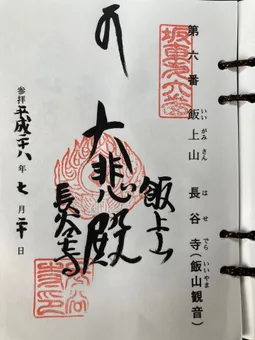 第六番 飯上山 長谷寺(飯山観音)
いいがみさん はせでら いいやま
坂東第六番
飯上山
大悲殿
長谷寺
参拝 平成二十八年 七月 二十日